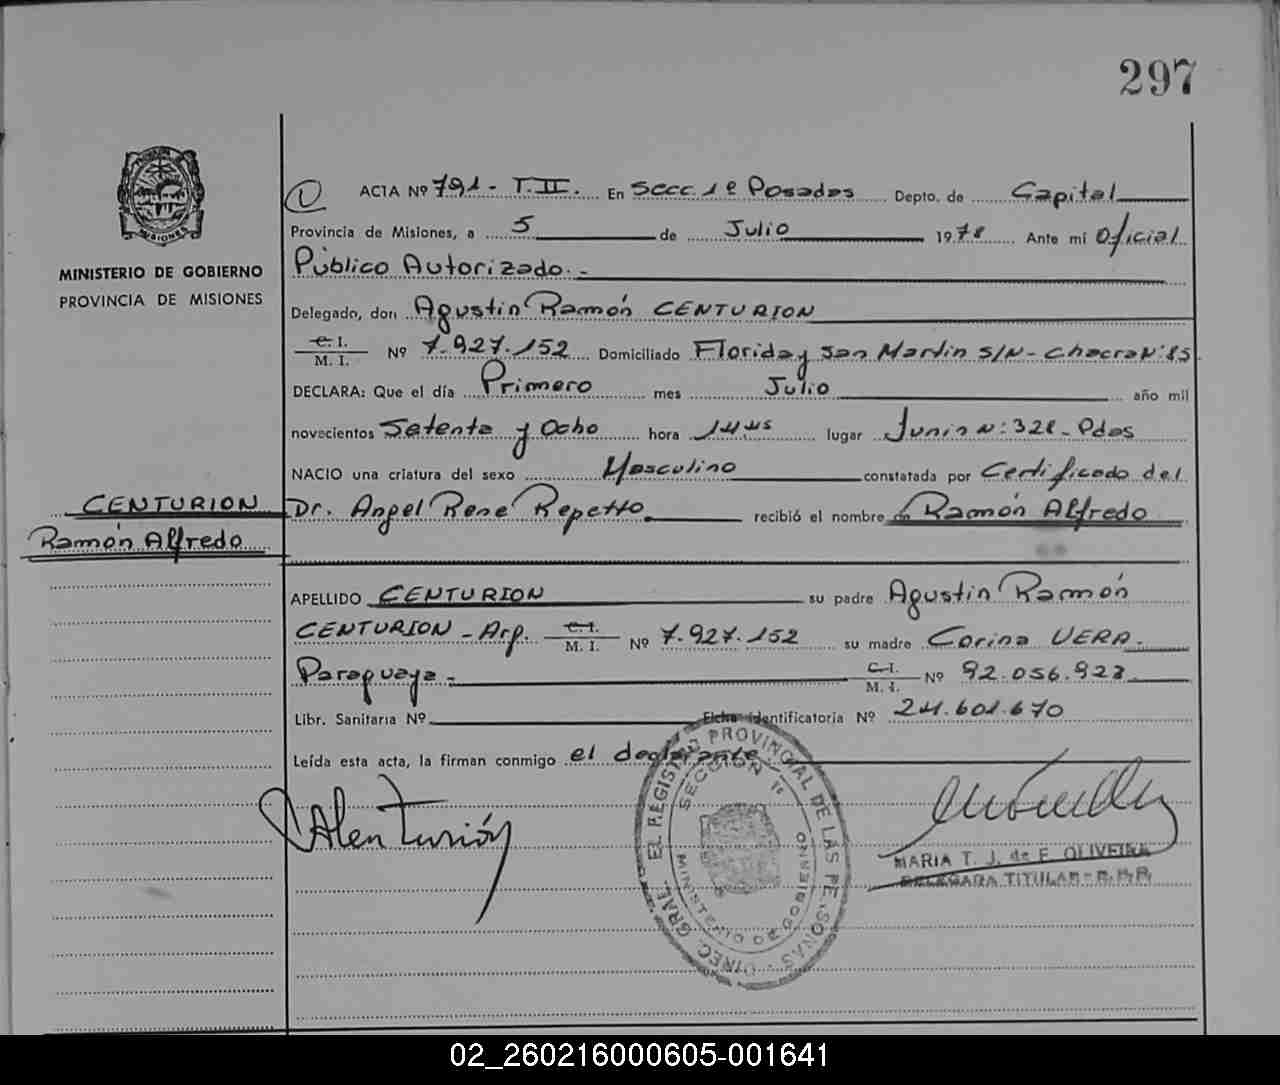 297
MINISTERIO DE GOBIERNO
PROVINCIA DE MISIONES
CENTURION
Ramón Alfredo
ACTA Nº 791 - T. II. En Secc. 1º Posadas Depto. de Capital
Provincia de Misiones, a 5 de Julio 1978 Ante mi Oficial
Público Autorizado. -
Delegado, don Agustin Ramón CENTURION
C. I.
M. I. Nº 7.927.152 Domiciliado Florida y San Martin S/N - Chacra Nº 85
DECLARA: Que el día Primero mes Julio año mil
novecientos Setenta y Ocho hora lugar Junin Nº 328 - Pdas
NACIO una criatura del sexo Masculino constatada por Certificado del
Dr. Angel Rene Repetto recibió el nombre de Ramón Alfredo
APELLIDO CENTURION su padre Agustin Ramón
CENTURION - Arg. C. I.
M. I. Nº 7.927.152 su madre Corina VERA.
Paraguaya - C. I.
M. I. Nº 92.056.923
Libr. Sanitaria Nº Ficha Identificatoria Nº 24.601.670
Leída esta acta, la firman conmigo el declarante
DIREC. GRAL. EL REGISTRO PROVINCIAL DE LAS PERSONAS
SECCION 1ª
MINISTERIO DE GOBIERNO
MARIA T. J. de F. OLIVEIRA
DELEGADA TITULAR - R. P. P.
02_260216000605-001641